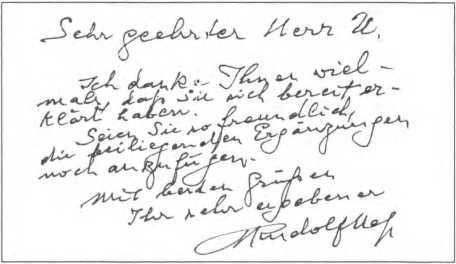 Sehr geehrter Herr U.
Ich danke Ihnen viel-
mals, daß Sie sich bereit er-
klärt haben.
Seien Sie so freundlich,
die beiliegenden Ergänzungen
noch anzufügen.
Mit besten Grüßen
Ihr sehr ergebener
Rudolf Heß